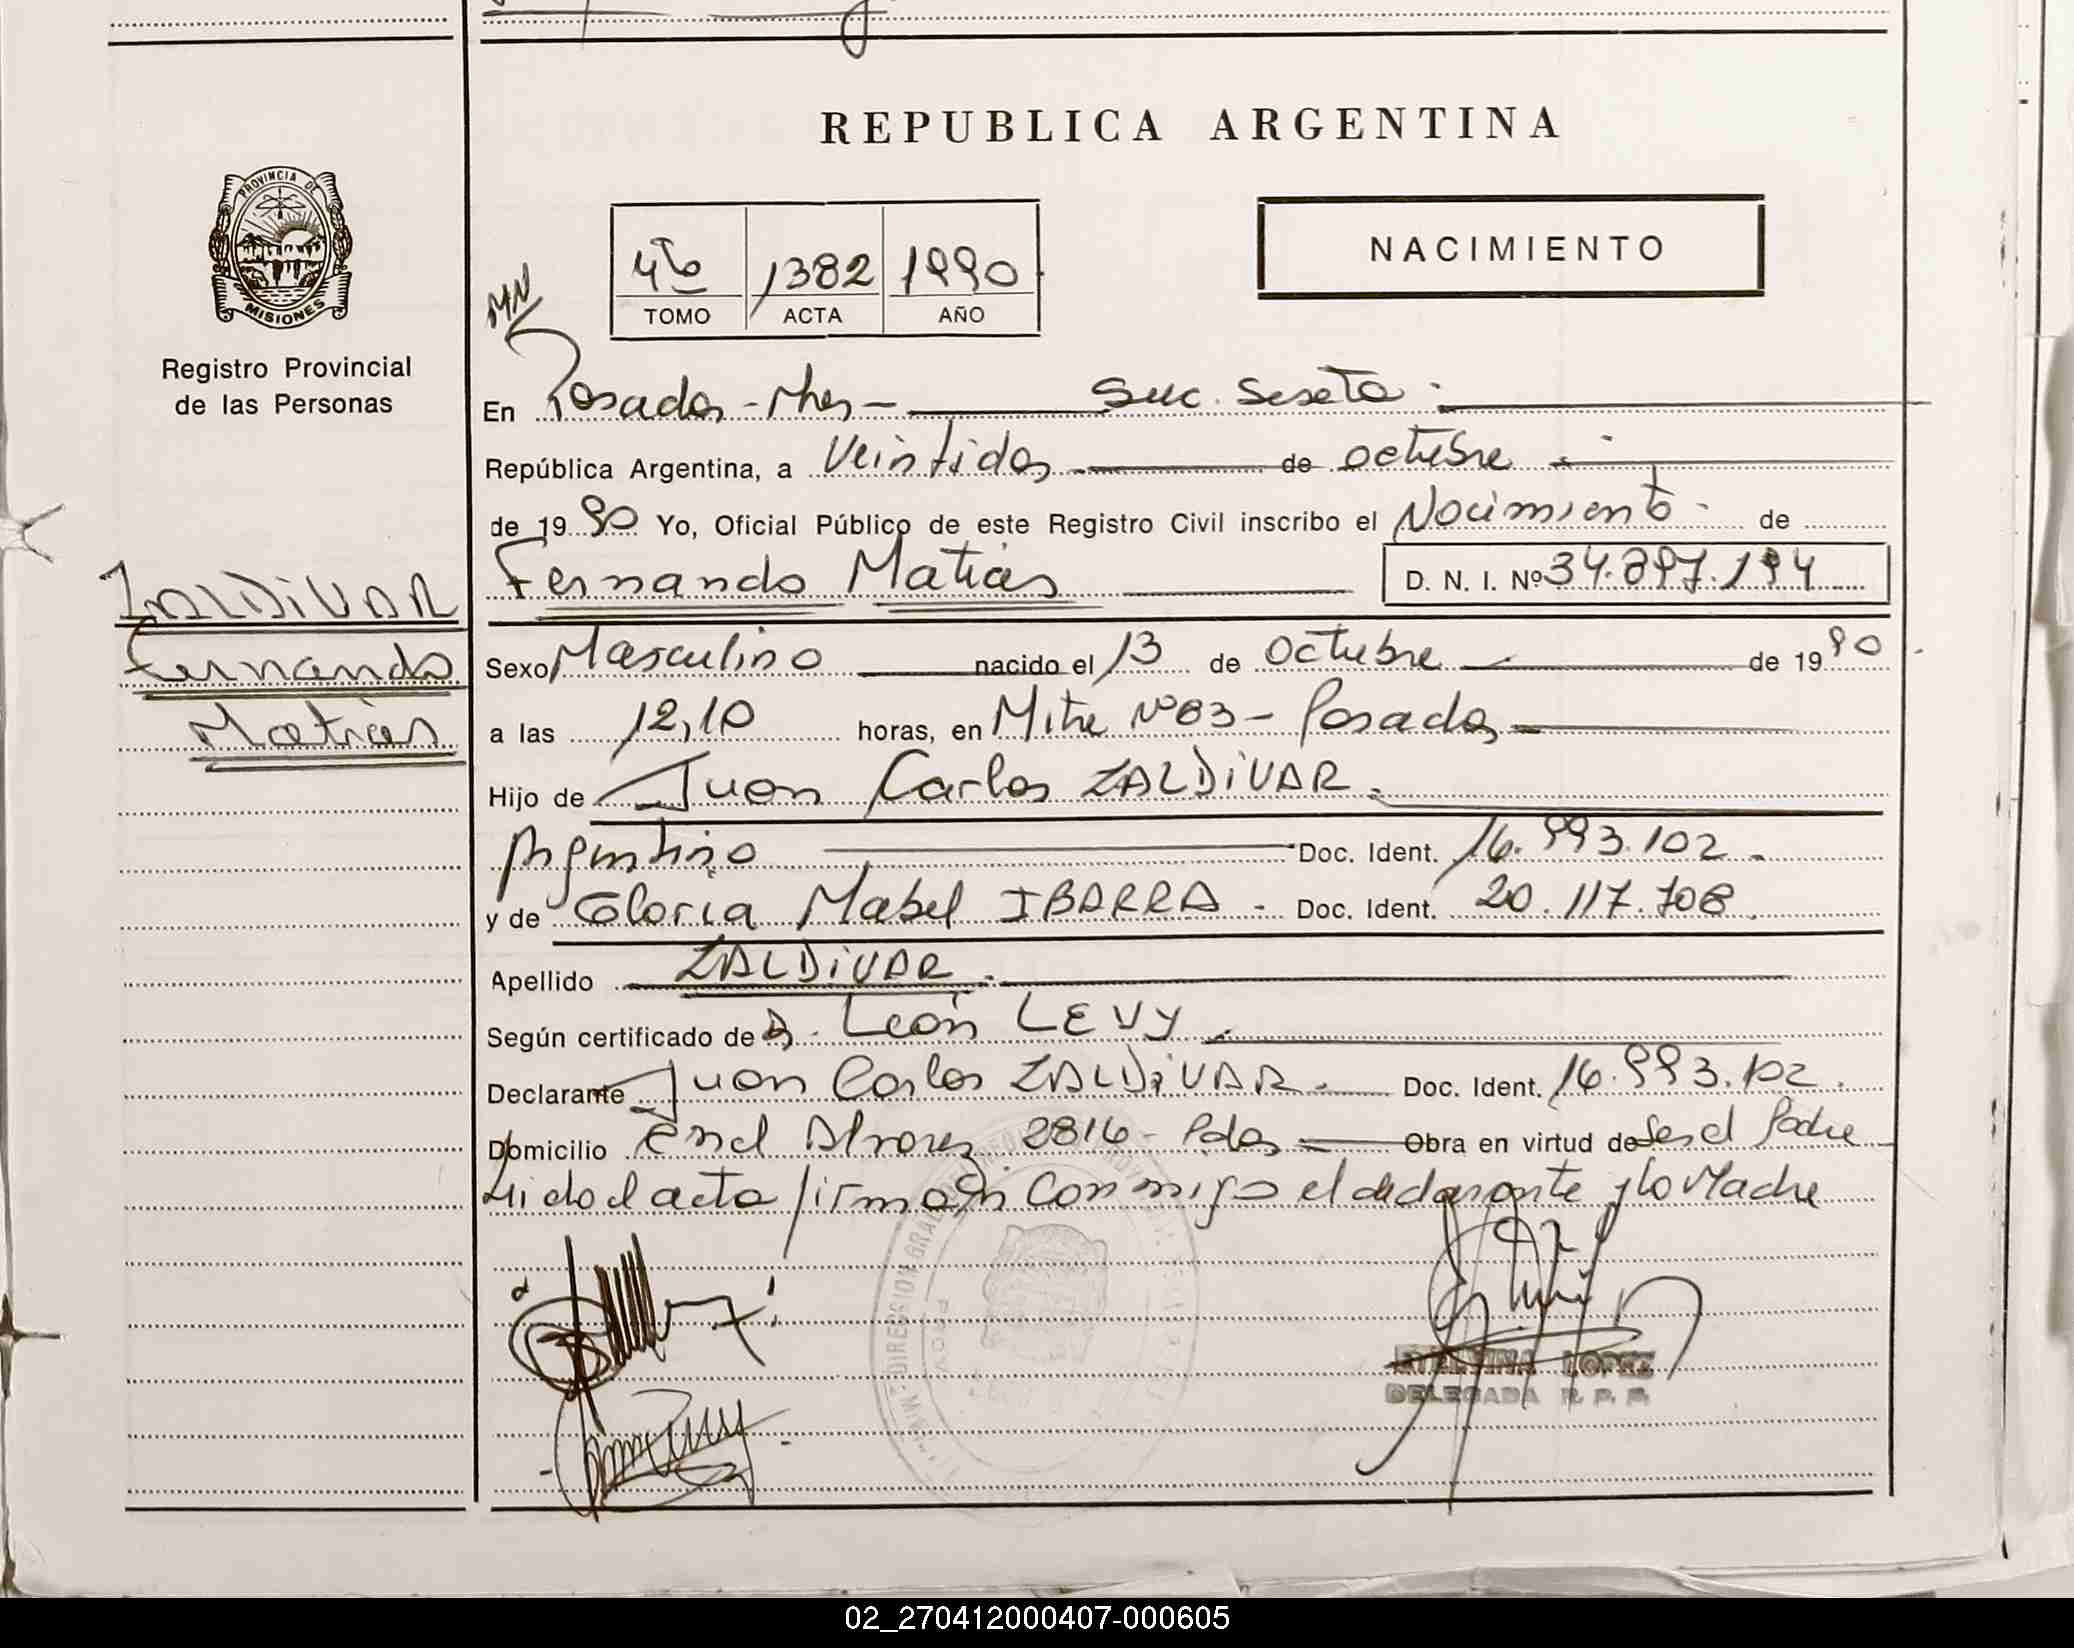 REPUBLICA ARGENTINA
PROVINCIA DE
MISIONES
Registro Provincial
de las Personas
4to 1382 1990
TOMO ACTA AÑO
NACIMIENTO
En Posadas - Mnes - Suc. Sexta
República Argentina, a Veintidos de octubre
de 1990 Yo, Oficial Público de este Registro Civil inscribo el Nacimiento de
Fernando Matias D. N. I. Nº 34.897.194
ZALDIVAR
Fernando
Matias
Sexo Masculino nacido el 13 de Octubre de 1990
a las 12,10 horas, en Mitre Nº 83 - Posadas
Hijo de Juan Carlos ZALDIVAR.
Argentino Doc. Ident. 16.993.102
y de Gloria Mabel IBARRA - Doc. Ident. 20.117.708
Apellido ZALDIVAR.
Según certificado de D. León LEVY
Declarante Juan Carlos ZALDIVAR. Doc. Ident. 16.993.102.
Domicilio 2816 - Pdas Obra en virtud de Ser el Padre
Leido el acta firman conmigo el declarante y la Madre
LOPEZ
DELEGADA R. P. P.
02_270412000407-000605